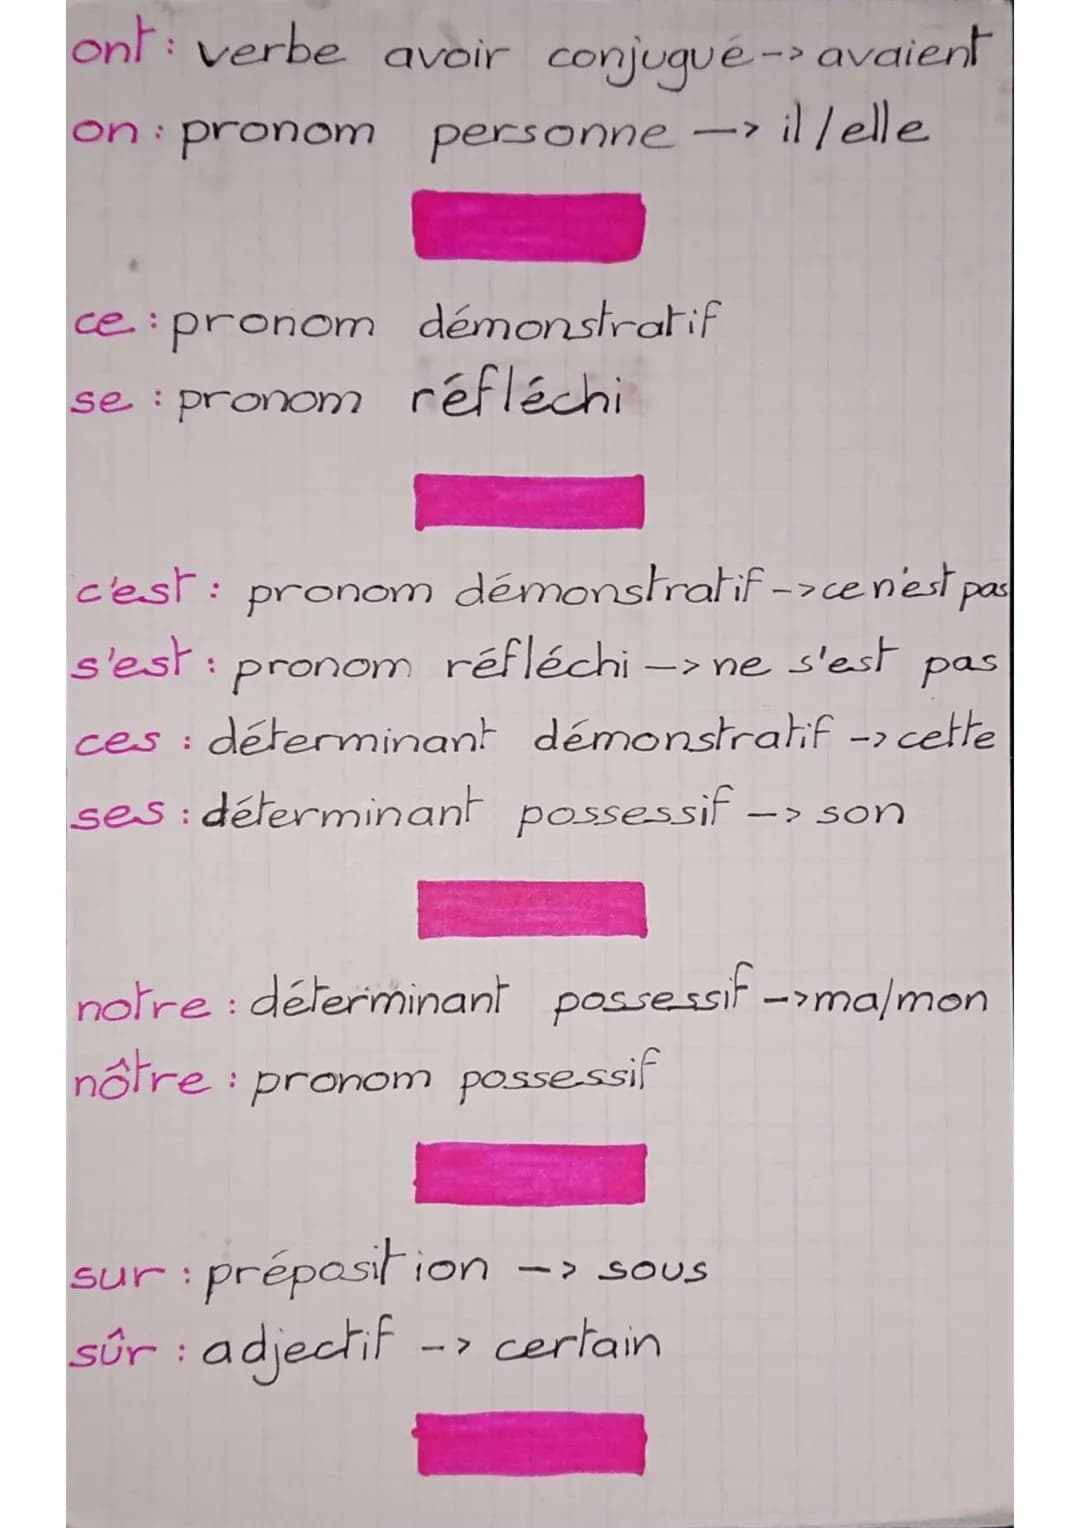 ont : verbe avoir conjugué -> avaient
on : pronom personne -> il/elle
ce : pronom démonstratif
se : pronom réfléchi
c'est : pronom démonstratif -> ce n'est pas
s'est : pronom réfléchi -> ne s'est pas
ces : déterminant démonstratif -> cette
ses : déterminant possessif -> son
notre : déterminant possessif -> ma/mon
nôtre : pronom possessif
sur : préposition -> sous
sûr : adjectif -> certain